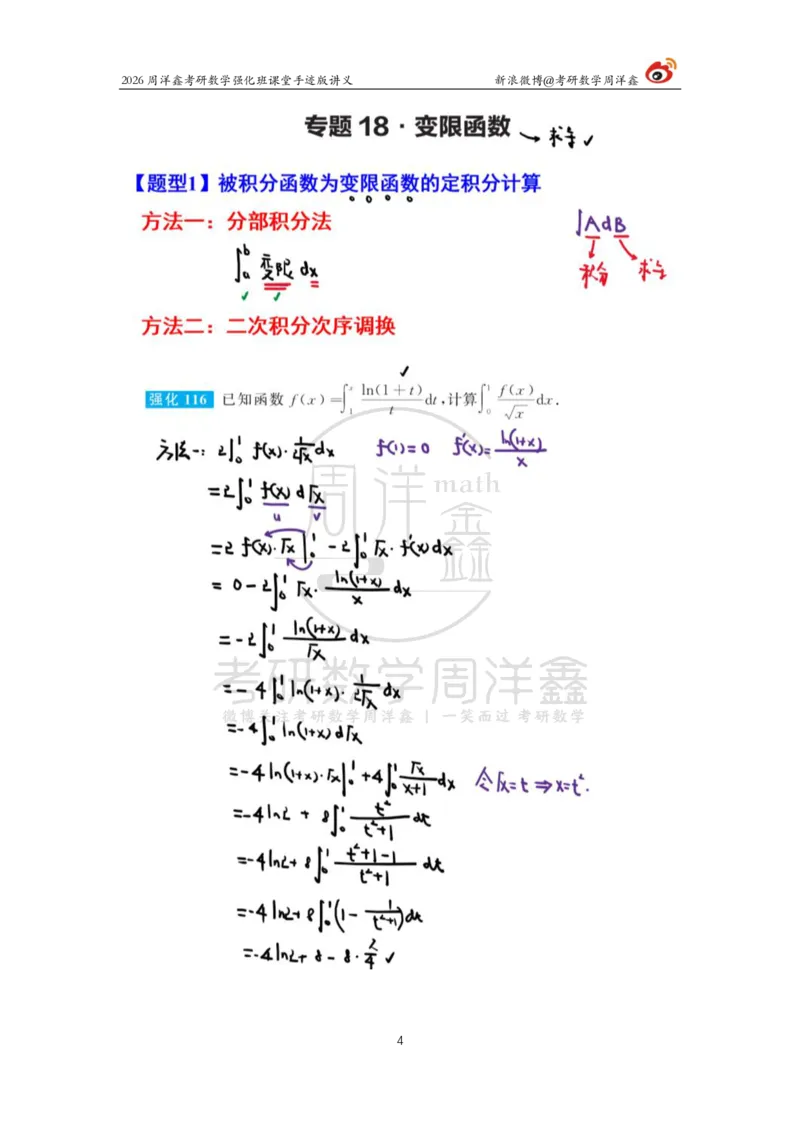 2026周洋鑫考研数学强化班课堂手迹版讲义 新浪微博@考研数学周洋鑫
专题 18 · 变限函数 → 求导 ✓
【题型1】被积分函数为变限函数的定积分计算
方法一：分部积分法 ∫AdB
∫₀ᵇ 变限 dx 积分 求导
方法二：二次积分次序调换
强化 116 已知函数 f(x)=∫₁ˣ ln(1+t)/t dt,计算∫₀¹ f(x)/√x dx.
方法一: 2∫₀¹ f(x)·1/(2√x) dx f(1)=0 f'(x)=ln(1+x)/x
=2∫₀¹ f(x) d√x
u v
=2 f(x)·√x|₀¹ -2∫₀¹ √x·f'(x)dx
= 0-2∫₀¹ √x·ln(1+x)/x dx
=-2∫₀¹ ln(1+x)/√x dx
=-4∫₀¹ ln(1+x)·1/(2√x) dx
=-4∫₀¹ ln(1+x)d√x
=-4ln(1+x)·√x|₀¹ +4∫₀¹ √x/(x+1) dx 令√x=t⇒x=t².
=-4ln2 + 8∫₀¹ t²/(t²+1) dt
=-4ln2+8∫₀¹ (t²+1-1)/(t²+1) dt
=-4ln2+8∫₀¹(1-1/(t²+1))dt
=-4ln2+8-8·π/4 ✓
周洋鑫 math
考研数学周洋鑫
微博关注考研数学周洋鑫 | 一笑而过 考研数学
4